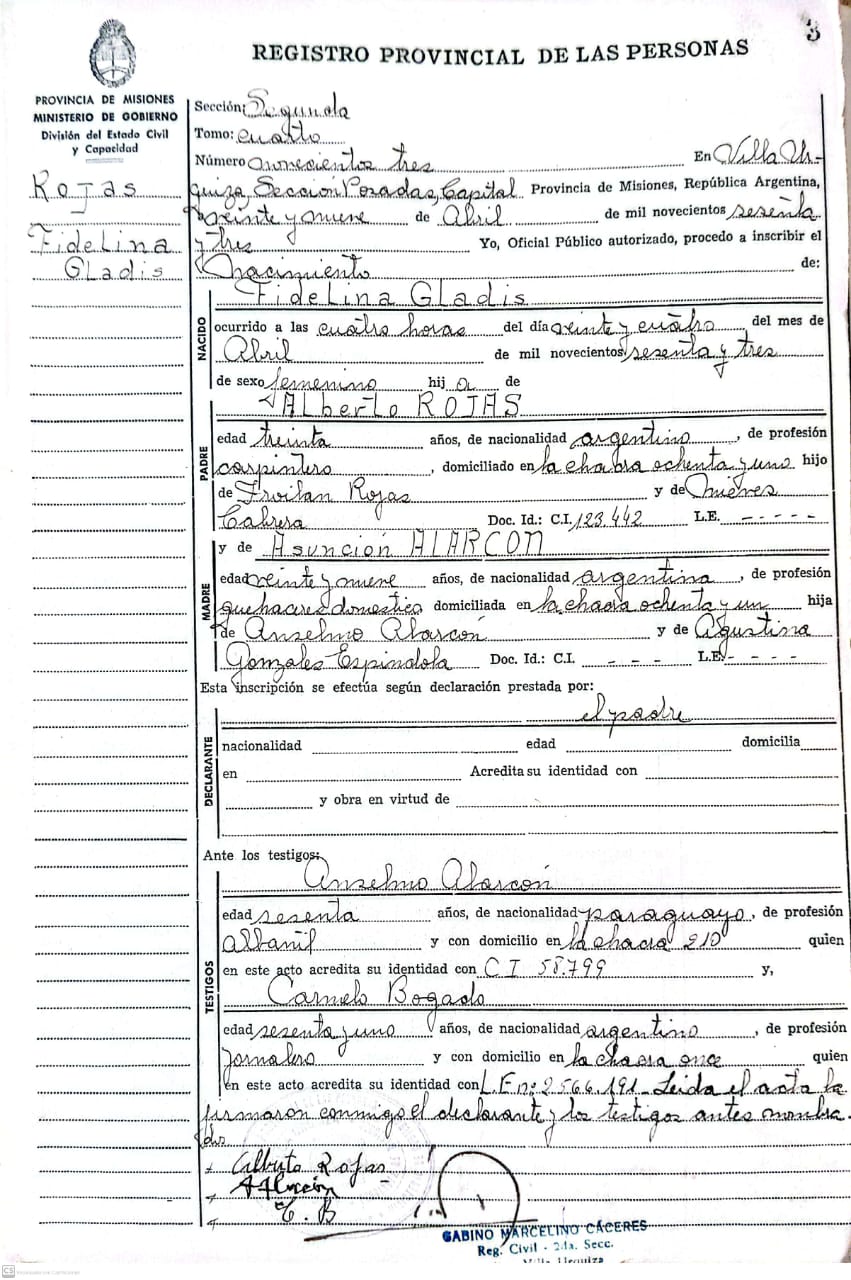 3
REGISTRO PROVINCIAL DE LAS PERSONAS
PROVINCIA DE MISIONES
MINISTERIO DE GOBIERNO
División del Estado Civil
y Capacidad
Rojas
Fidelina
Gladis
Sección: Segunda
Tomo: cuarto
Número novecientos tres En Villa Ur-
quiza, Sección Posadas, Capital Provincia de Misiones, República Argentina,
a veinte y nueve de Abril de mil novecientos sesenta
y tres Yo, Oficial Público autorizado, procedo a inscribir el
Nacimiento de:
NACIDO
Fidelina Gladis
ocurrido a las cuatro horas del día veinte y cuatro del mes de
Abril de mil novecientos sesenta y tres
de sexo femenino hij a de
PADRE
Alberto ROJAS
edad treinta años, de nacionalidad argentino, de profesión
carpintero, domiciliado en la chacra ochenta y uno hijo
de Froilan Rojas y de Nieves
Cabrera Doc. Id.: C.I. 123.442 L.E. - - - - -
MADRE
y de Asunción ALARCON
edad veinte y nueve años, de nacionalidad argentina, de profesión
quehaceres domestico domiciliada en la chacra ochenta y un hija
de Anselmo Alarcón y de Agustina
Gonzales Espindola Doc. Id.: C.I. - - - L.E. - - - -
Esta inscripción se efectúa según declaración prestada por:
el padre
DECLARANTE
nacionalidad edad domicilia
en Acredita su identidad con
y obra en virtud de
Ante los testigos:
TESTIGOS
Anselmo Alarcón
edad sesenta años, de nacionalidad paraguayo, de profesión
albañil y con domicilio en la chacra 210 quien
en este acto acredita su identidad con C I 58.799 y,
Carmelo Bogado
edad sesenta y uno años, de nacionalidad argentino, de profesión
jornalero y con domicilio en la chacra once quien
en este acto acredita su identidad con L.E nº 2.566.191- Leida el acta la
firmaron conmigo el declarante y los testigos antes nombra-
dos
Alberto Rojas
C. B
GABINO MARCELINO CÁCERES
Reg. Civil - 2da. Secc.
Villa Urquiza
CS